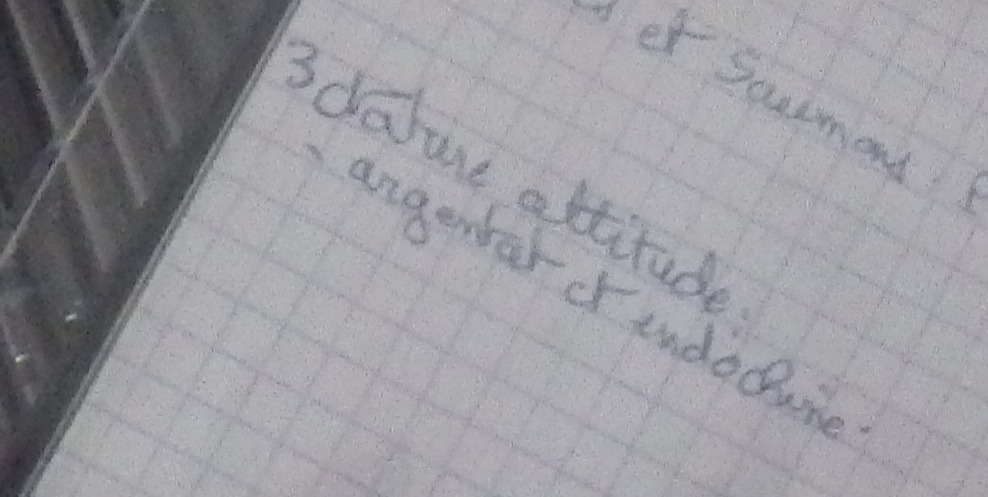 et Saumons
3 dature attitude:
- argentat et indochine.